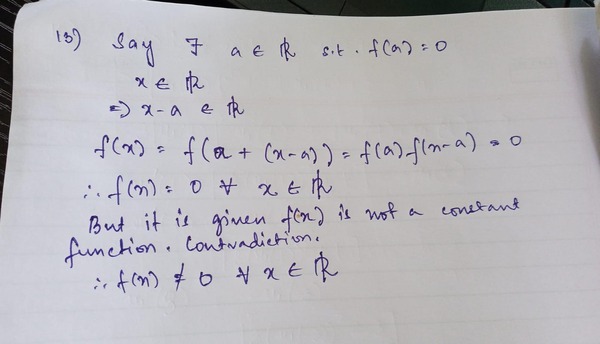 13) Say ∃ a ∈ ℝ s.t. f(a) = 0
x ∈ ℝ
⇒ x-a ∈ ℝ
f(x) = f(a + (x-a)) = f(a) f(x-a) = 0
∴ f(x) = 0 ∀ x ∈ ℝ
But it is given f(x) is not a constant
function. Contradiction.
∴ f(x) ≠ 0 ∀ x ∈ ℝ